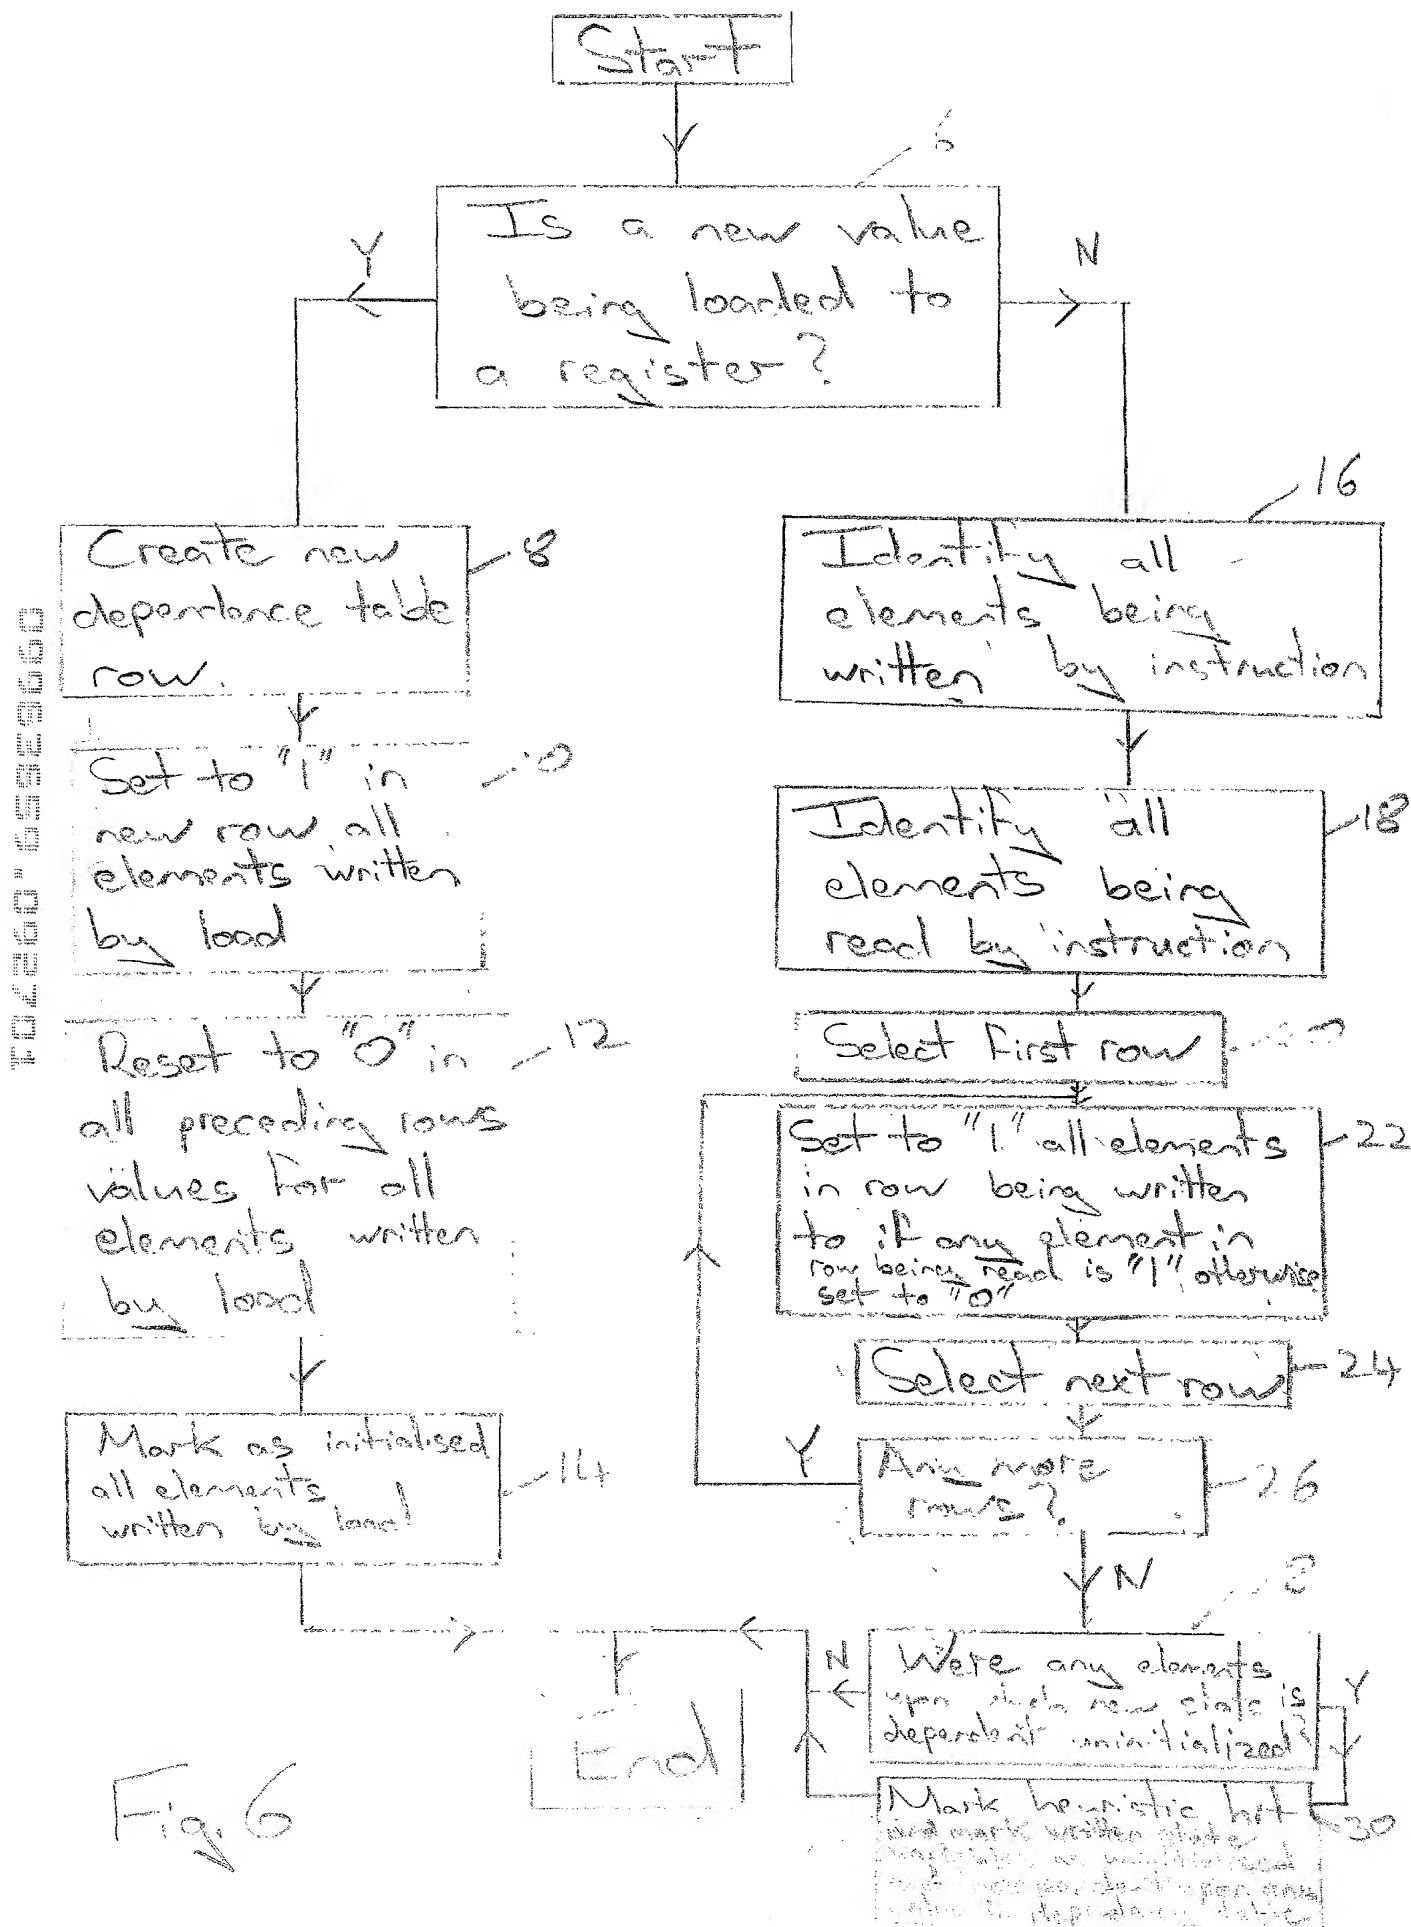 Start
6
Is a new value
being loaded to
a register?
Y
N
Create new
dependence table
row.
8
Set to "1" in
new row all
elements written
by load
Reset to "0" in
all preceding rows
values for all
elements written
by load
12
Mark as initialised
all elements
written by load
14
16
Identify all
elements being
written by instruction
Identify all
elements being
read by instruction
18
Select first row
Set to "1" all elements
in row being written
to if any element in
row being read is "1" otherwise
set to "0"
22
Select next row
24
Any more
rows?
26
Y
N
Were any elements
upon which new state is
dependent uninitialized?
N
Y
Mark heuristic hit
and mark written state
30
End
Fig. 6
09965559.092701